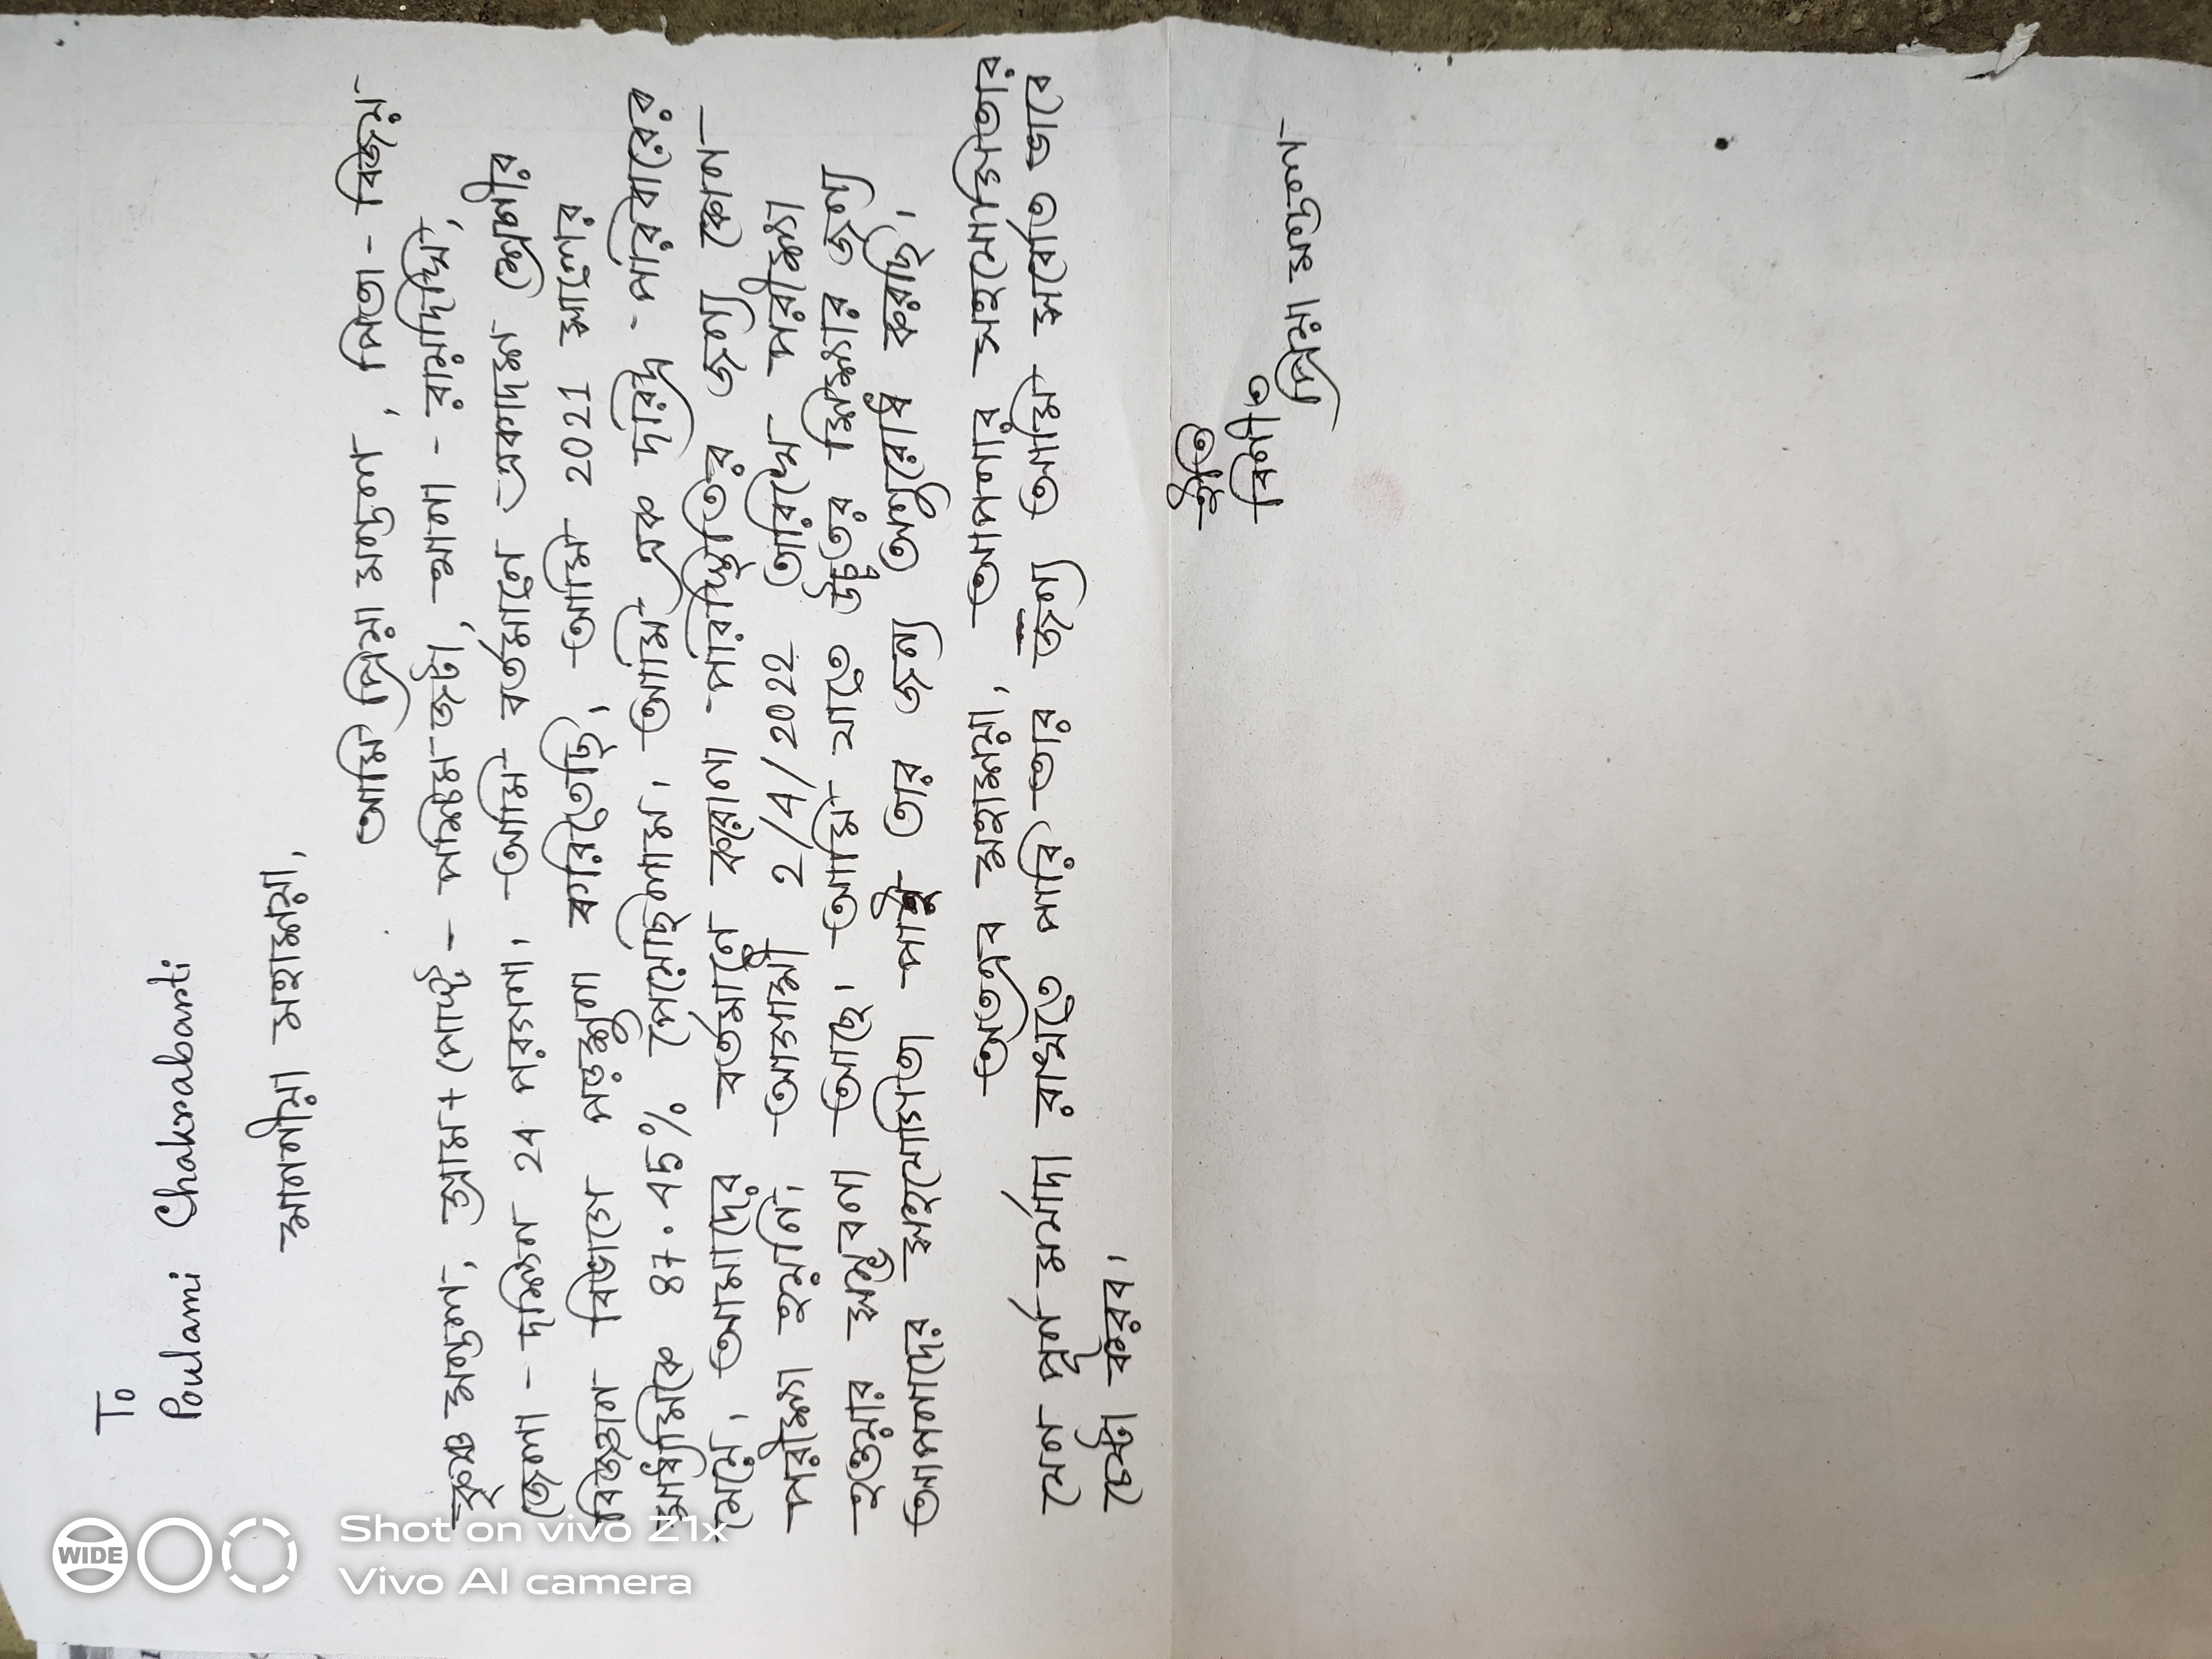 To
Poulami Chakrabarti
মাননীয়া মহাশয়া,
আমি প্রিয়া মণ্ডল, পিতা - বিজয়
কৃষ্ণ মণ্ডল, গ্রাম + পোষ্ট - পশ্চিম জটা, থানা - রায়দিঘী,
জেলা - দক্ষিণ 24 পরগনা। আমি বর্তমানে একাদশ শ্রেণীর
বিজ্ঞান বিভাগে পড়াশুনা করিতেছি। আমি 2021 সালের
মাধ্যমিকে 87.45% পেয়েছিলাম। আমি এক দরিদ্র পরিবারের
মেয়ে। আমাদের বর্তমানে করোনা পরিস্থিতির জন্য কোন
পরীক্ষা হয়নি। আগামী 2/4/2022 তারিখে পরীক্ষা
হওয়ার সম্ভবনা আছে। আমি যাতে উচ্চতর শিক্ষার জন্য
আপনাদের সহযোগিতা পাই তার জন্য অনুরোধ করছি।
অতএব মহাশয়া, আপনার সহযোগিতার
যেন পূর্ন মর্যাদা রাখতে পারি তার জন্য আমি সর্বোত ভাবে
চেষ্টা করব।
ইতি
বিনীত
প্রিয়া মণ্ডল
WIDE
Shot on vivo Z1x
Vivo AI camera